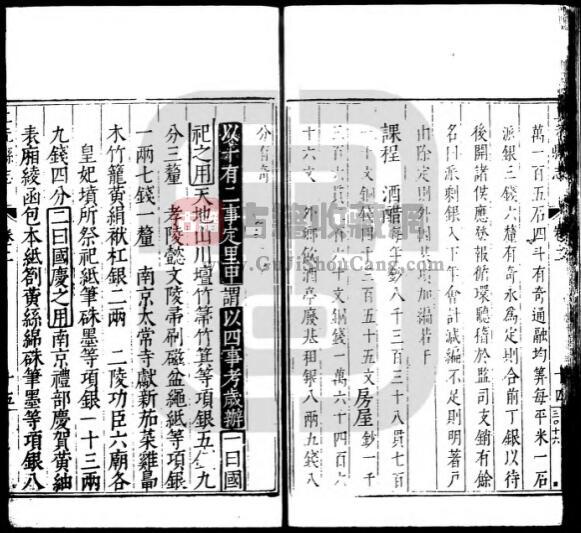 萬一百五石四斗有奇通融均算每平米一石
派銀三錢六釐有奇永為定則合前丁銀以待
後開諸侯應登報循環聽稽於監司支銷有餘
名曰派剩銀入下年會計減編不足則明著戶
由除定則外
課程 酒醋每年鈔八千三百三十八貫七百
一十文銅錢四千三百五十五文房屋鈔一千
文銅錢一萬六千四百六
十六文 外鄉飲酒亭廢基租銀八兩九錢八
分有奇
有二事定里甲謂以四事考歲辦一曰國
祀之用天地山川壇竹箒竹筐等項銀五錢九
分三釐 孝陵懿文陵帚刷磁盆繩紙等項銀
一兩七錢一釐 南京太常寺獻新茄菜雞
木竹籠黃絹袱杠銀二兩 二陵功臣六廟各
皇妃墳所祭祀紙筆硃墨等項銀一十三兩
九錢四分二曰國慶之用南京禮部慶賀黃紬
表廂綾函包本紙劄黃絲綿硃筆墨等項銀八
志
卷二
古籍收藏网
www.GuJiShouCang.Com